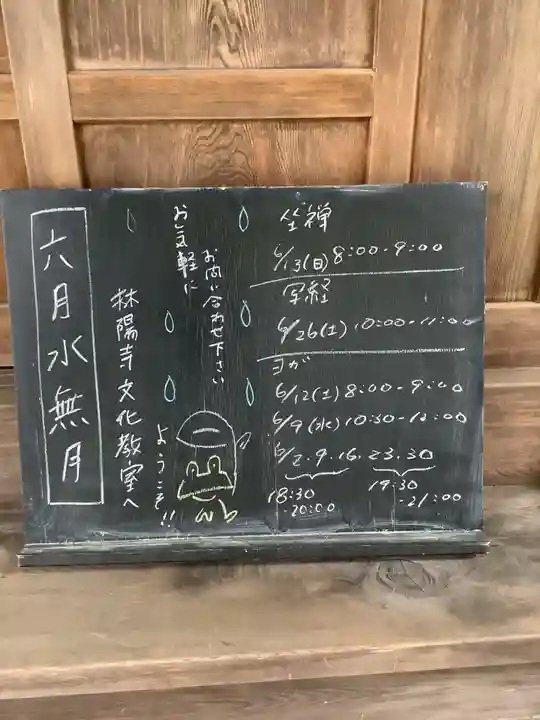 六月水無月
林陽寺文化教室へ
ようこそ!!
お気軽に
お問い合わせ下さい
坐禅
6/13(日) 8:00-9:00
写経
6/26(土) 10:00-11:00
ヨガ
6/12(土) 8:00-9:00
6/9(水) 10:30-12:00
6/2.9.16.23.30
18:30
-20:00
19:30
-21:00